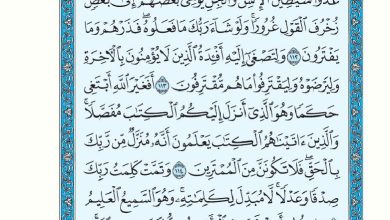 عَدُوًّا شَيَٰطِينَ ٱلْإِنسِ وَٱلْجِنِّ يُوحِى بَعْضُهُمْ إِلَىٰ بَعْضٍ
زُخْرُفَ ٱلْقَوْلِ غُرُورًا ۚ وَلَوْ شَآءَ رَبُّكَ مَا فَعَلُوهُ ۖ فَذَرْهُمْ وَمَا
يَفْتَرُونَ ١١٢ وَلِتَصْغَىٰٓ إِلَيْهِ أَفْـِٔدَةُ ٱلَّذِينَ لَا يُؤْمِنُونَ بِٱلْأَخِرَةِ
وَلِيَرْضَوْهُ وَلِيَقْتَرِفُوا۟ مَا هُم مُّقْتَرِفُونَ ١١٣ أَفَغَيْرَ ٱللَّهِ أَبْتَغِى
حَكَمًا وَهُوَ ٱلَّذِىٓ أَنزَلَ إِلَيْكُمُ ٱلْكِتَٰبَ مُفَصَّلًا ۚ
وَٱلَّذِينَ ءَاتَيْنَٰهُمُ ٱلْكِتَٰبَ يَعْلَمُونَ أَنَّهُۥ مُنَزَّلٌ مِّن رَّبِّكَ
بِٱلْحَقِّ ۖ فَلَا تَكُونَنَّ مِنَ ٱلْمُمْتَرِينَ ١١٤ وَتَمَّتْ كَلِمَتُ رَبِّكَ
صِدْقًا وَعَدْلًا ۚ لَّا مُبَدِّلَ لِكَلِمَٰتِهِۦ ۚ وَهُوَ ٱلسَّمِيعُ ٱلْعَلِيمُ